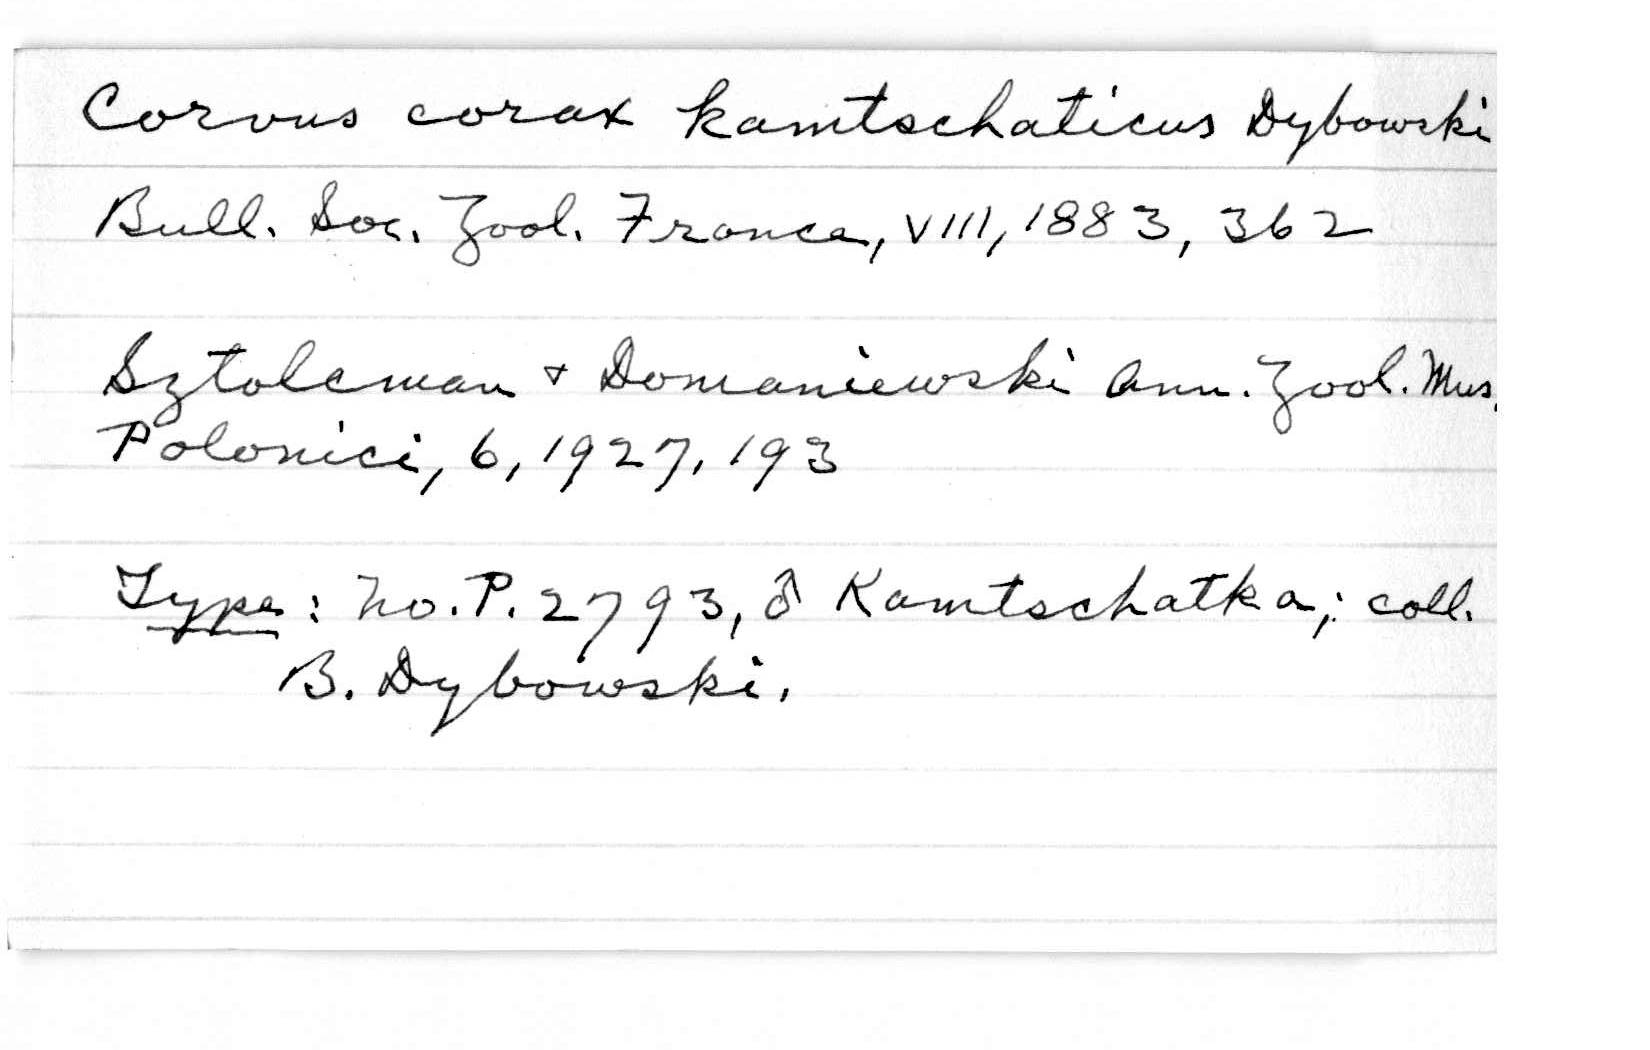 Corvus corax kamtschaticus Dybowski
Bull. Soc. Zool. France, VIII, 1883, 362
Sztolcman & Domaniewski Ann. Zool. Mus.
Polonici, 6, 1927, 193
Type: No. P. 2793, ♂ Kamtschatka; coll.
B. Dybowski.